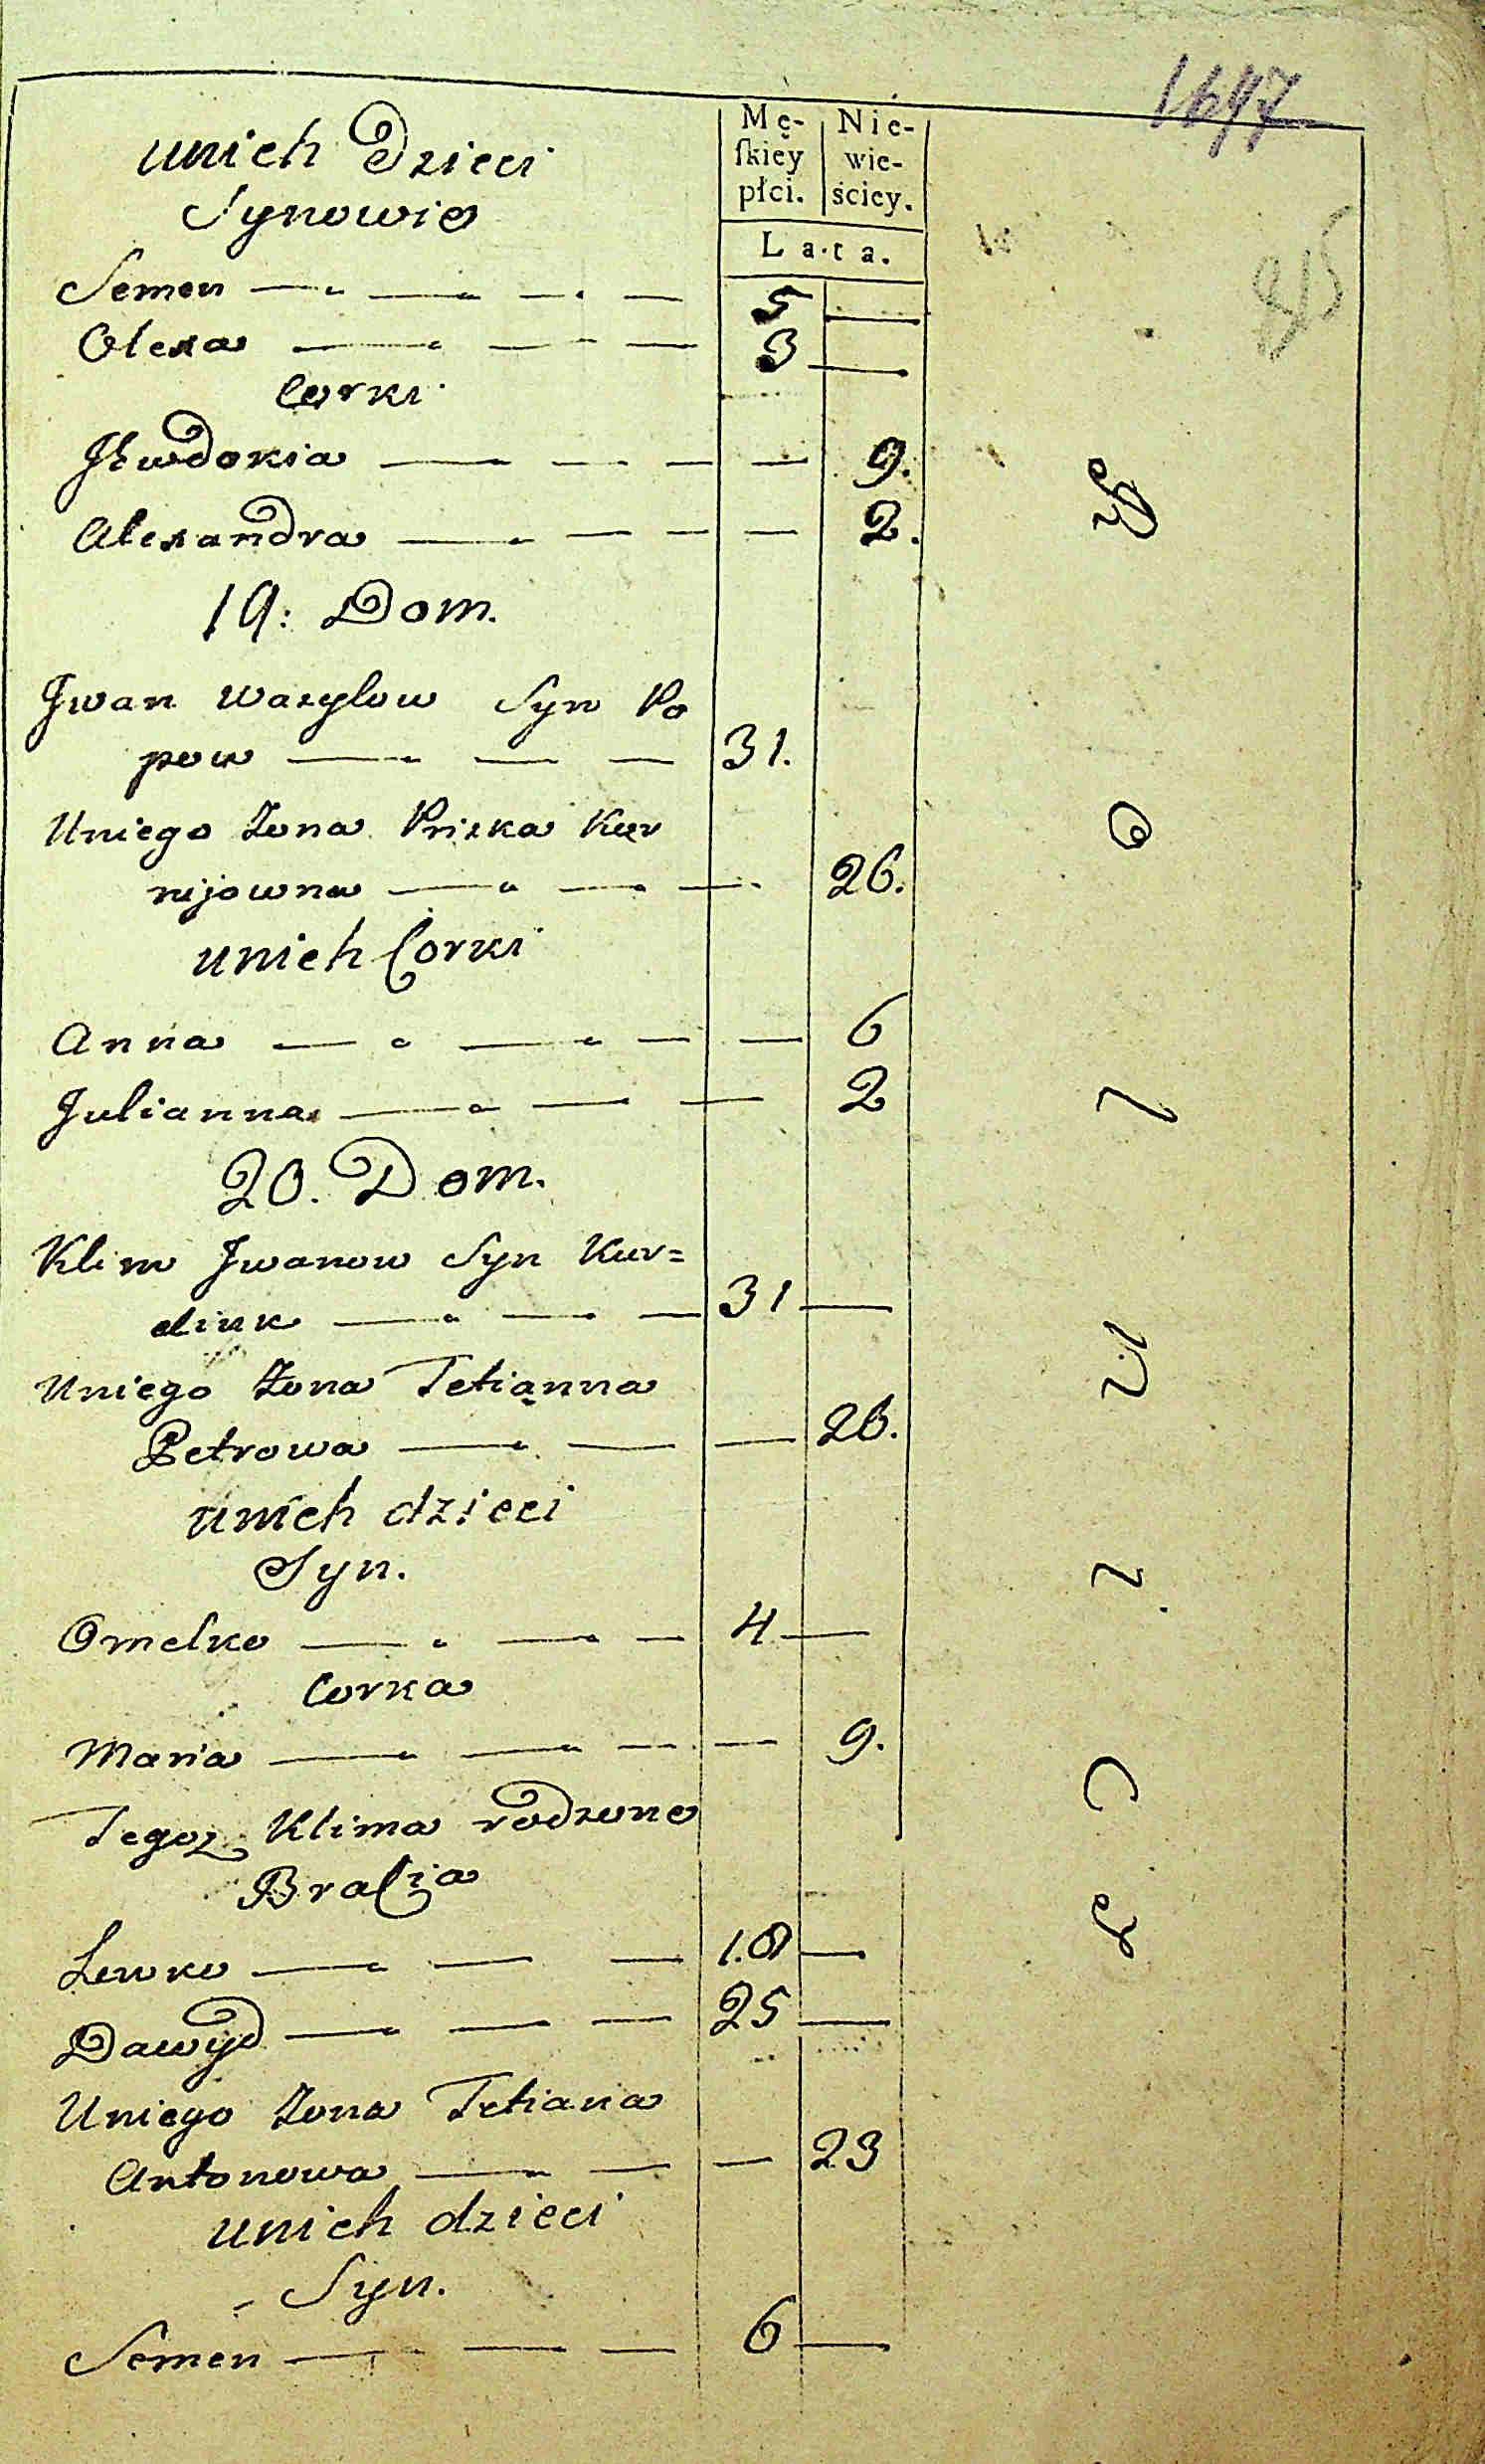 1697
85
Mę-
ſkiey
płci.
Nie-
wie-
ściey.
Lata.
unich Dzieci
Synowie
Semen — — — — 5 —
Olexa — — — 3 —
Corki
Jewdokia — — — — 9.
Alexandra — — — — 2.
19: Dom.
Jwan Wasylow Syn Po
pow — — — 31.
Uniego Zona Priska Kur
nijowna — — — 26.
unich Corki
Anna — — — — 6
Julianna — — — 2
20. Dom.
Klim Jwanow Syn Kur=
dink — — — 31 —
Uniego Zona Tetianna
Petrowa — — — 26.
unich dzieci
Syn.
Omelko — — — 4 —
Corka
Maria — — — — 9.
Tegoz Klima rodzone
Bracia
Lewko — — — 18 —
Dawyd — — — 25 —
Uniego Zona Tetiana
Antonowa — — — 23
unich dzieci
Syn.
Semen — — — 6 —